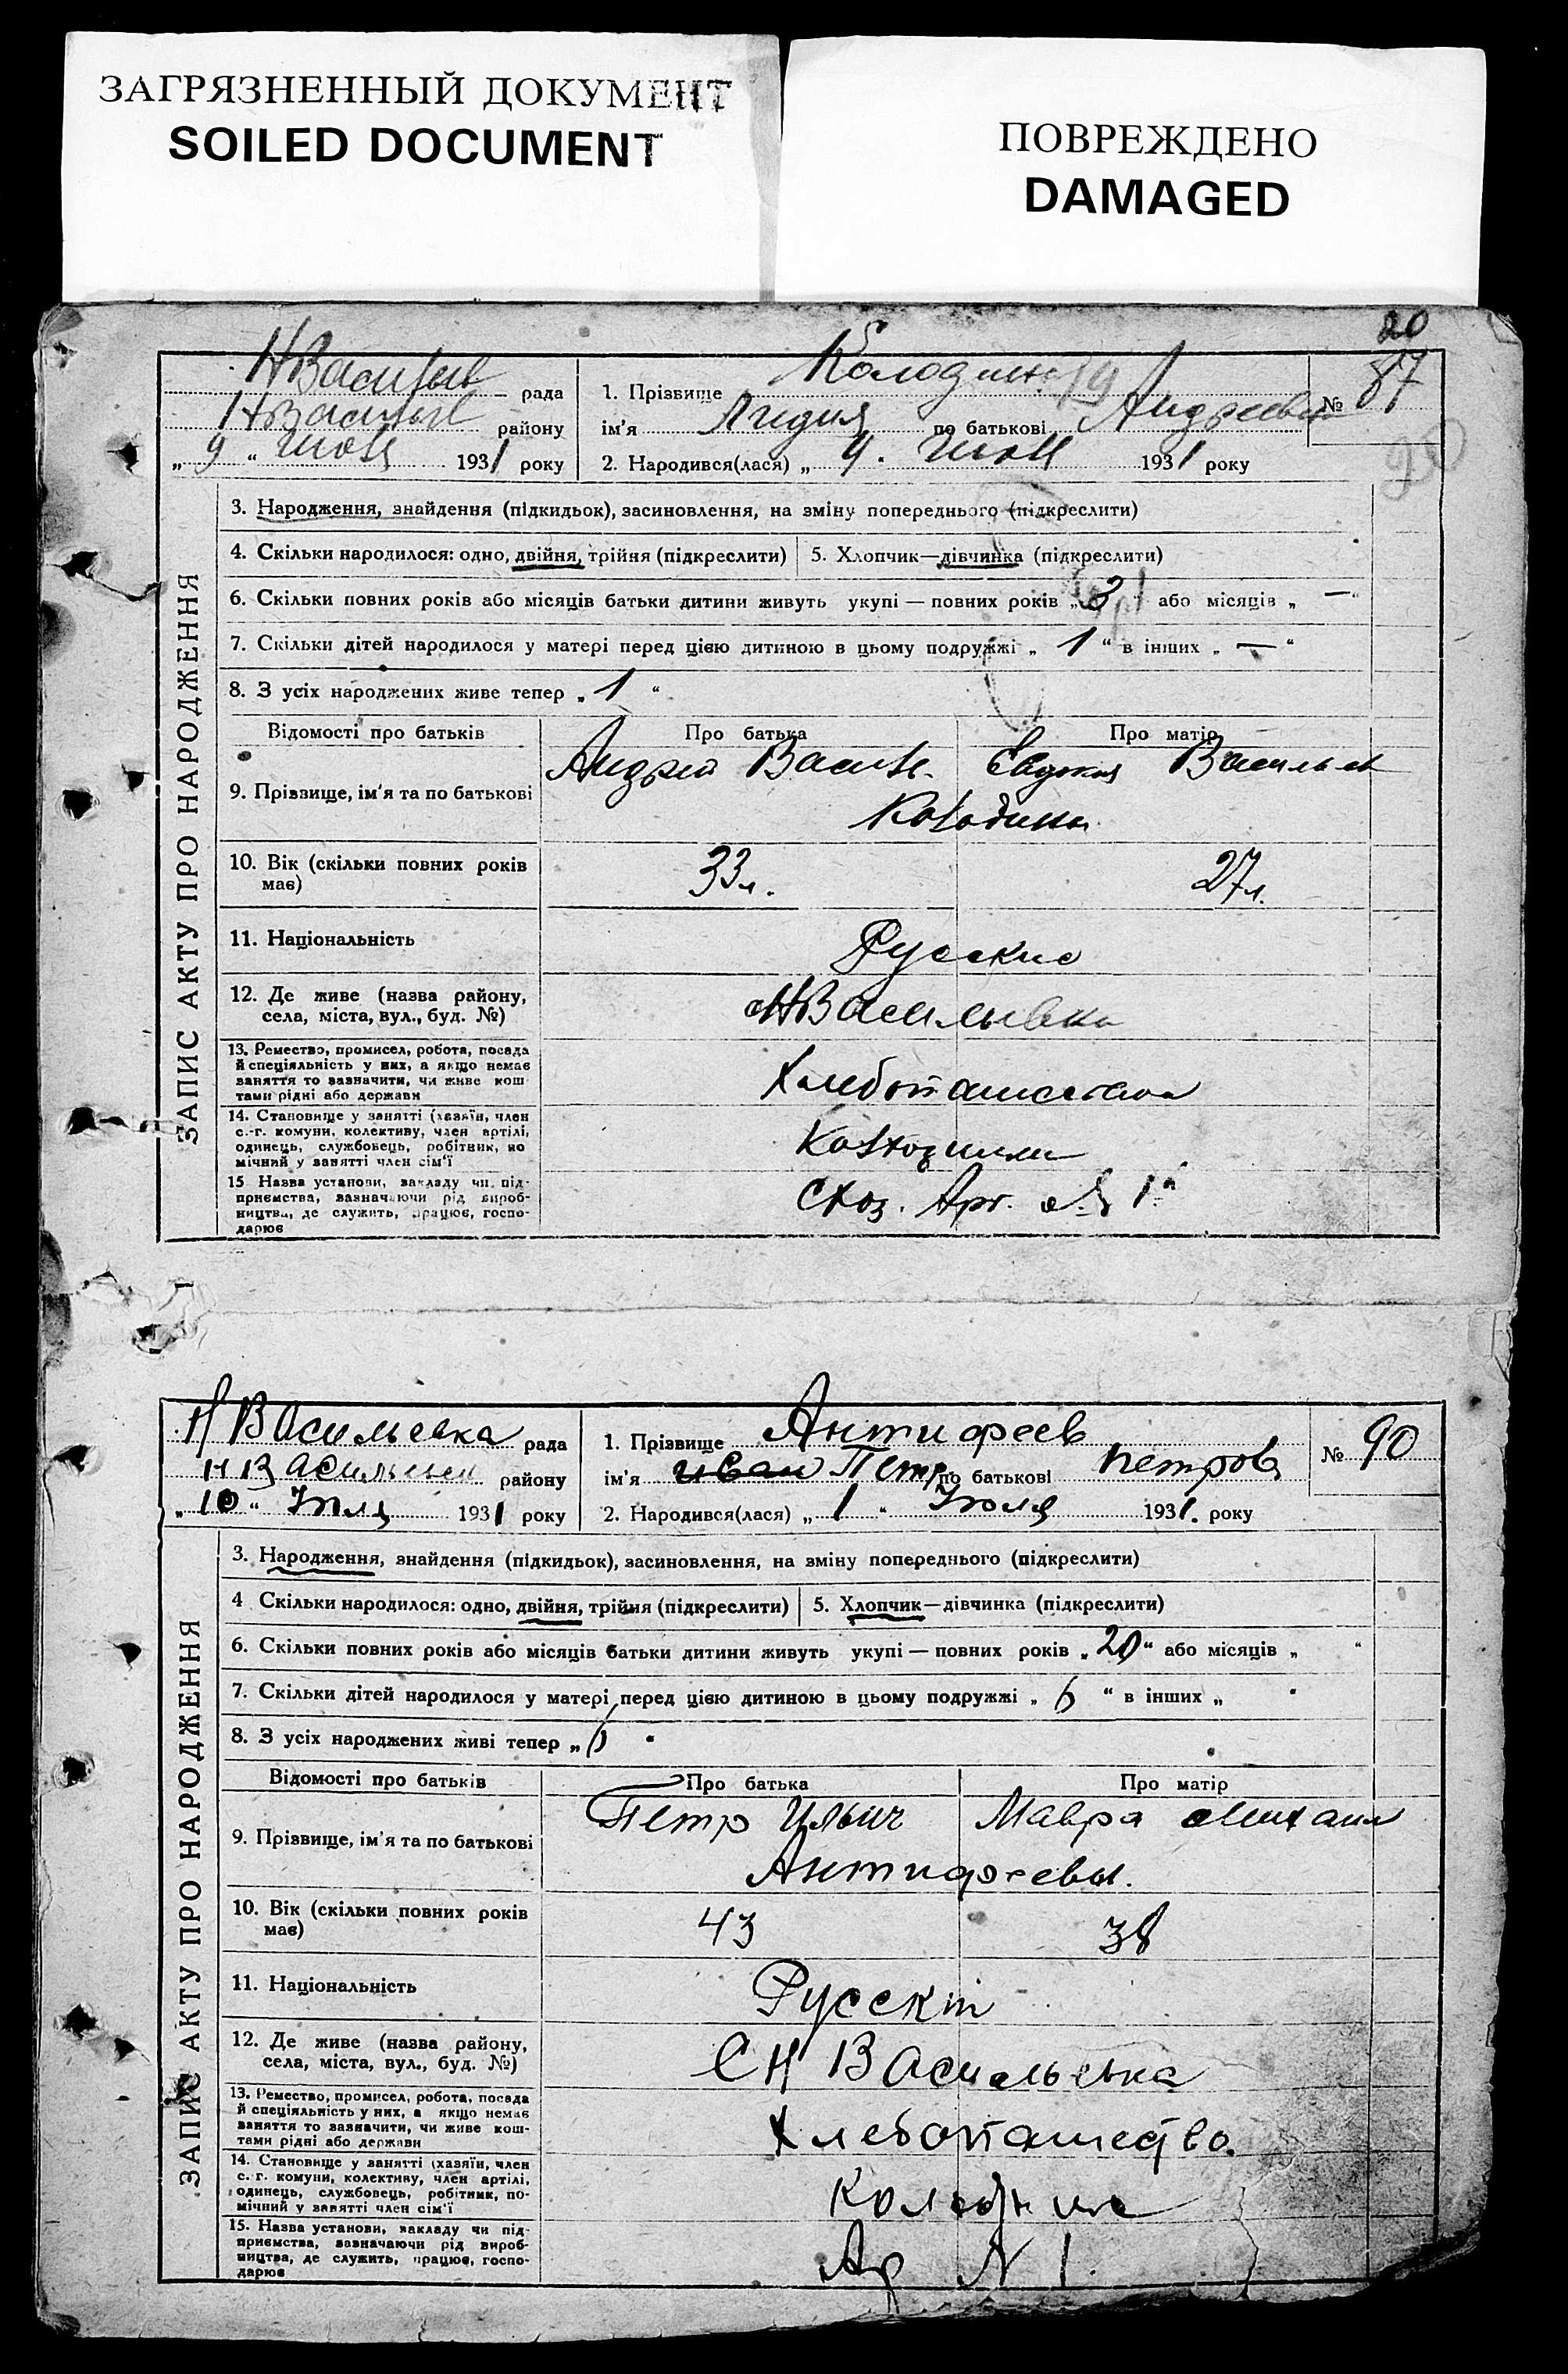 ЗАГРЯЗНЕННЫЙ ДОКУМЕНТ
SOILED DOCUMENT
ПОВРЕЖДЕНО
DAMAGED
20
рада
району
„ 9 “ 1931 року
1. Прізвище
ім'я Лидия по батькові Андреевн
2. Народився(лася) „ 4. 1931 року
№ 87
90
ЗАПИС АКТУ ПРО НАРОДЖЕННЯ
3. Народження, знайдення (підкидьок), засиновлення, на зміну попереднього (підкреслити)
4. Скільки народилося: одно, двійня, трійня (підкреслити) 5. Хлопчик—дівчинка (підкреслити)
6. Скільки повних років або місяців батьки дитини живуть укупі — повних років „3“ або місяців „—“
7. Скільки дітей народилося у матері перед цією дитиною в цьому подружжі „ 1 “ в інших „ — “
8. З усіх народжених живе тепер „ 1 “
Відомості про батьків Про батька Про матір
9. Прізвище, ім'я та по батькові
Андрей Васил. Евдокия Васильев
10. Вік (скільки повних років
має)
33 л. 27 л.
11. Національність
Русские
12. Де живе (назва району,
села, міста, вул., буд. №)
НВасильевка
13. Ремество, промисел, робота, посада
й спеціяльність у них, а якщо немає
заняття то зазначити, чи живе кош
тами рідні або держави
Хлебопашество
14. Становище у занятті (хазяїн, член
с.-г. комуни, колективу, член артілі,
одинець, службовець, робітник, по
мічний у занятті член сім'ї
15 Назва установи, закладу чи під-
приємства, зазначаючи рід вироб-
ництва, де служить, працює, госпо-
дарює
Схоз. Арт. № 1
Н Васильевка рада
Н Васильевк району
„ 10 “ Июля 1931 року
1. Прізвище Антифеев
ім'я Иван Петр по батькові Петров
2. Народився(лася) „ 1 “ Июля 1931. року
№ 90
ЗАПИС АКТУ ПРО НАРОДЖЕННЯ
3. Народження, знайдення (підкидьок), засиновлення, на зміну попереднього (підкреслити)
4 Скільки народилося: одно, двійня, трійня (підкреслити) 5. Хлопчик—дівчинка (підкреслити)
6. Скільки повних років або місяців батьки дитини живуть укупі — повних років „20“ або місяців „ “
7. Скільки дітей народилося у матері перед цією дитиною в цьому подружжі „ 6 “ в інших „ “
8. З усіх народжених живі тепер „ 6 “
Відомості про батьків Про батька Про матір
9. Прізвище, ім'я та по батькові
Петр Ильич Мавра Михаил
Антифеевы.
10. Вік (скільки повних років
має)
43 38
11. Національність
Русскій
12. Де живе (назва району,
села, міста, вул., буд. №)
С Н Васильевка
13. Ремество, промисел, робота, посада
й спеціяльність у них, а якщо немає
заняття то зазначити, чи живе кош-
тами рідні або держави
Хлебопашество.
14. Становище у занятті (хазяїн, член
с.-г. комуни, колективу, член артілі,
одинець, службовець, робітник, по-
мічний у занятті член сім'ї
15. Назва установи, закладу чи під-
приємства, зазначаючи рід вироб-
ництва, де служить, працює, госпо-
дарює
Ар N 1.